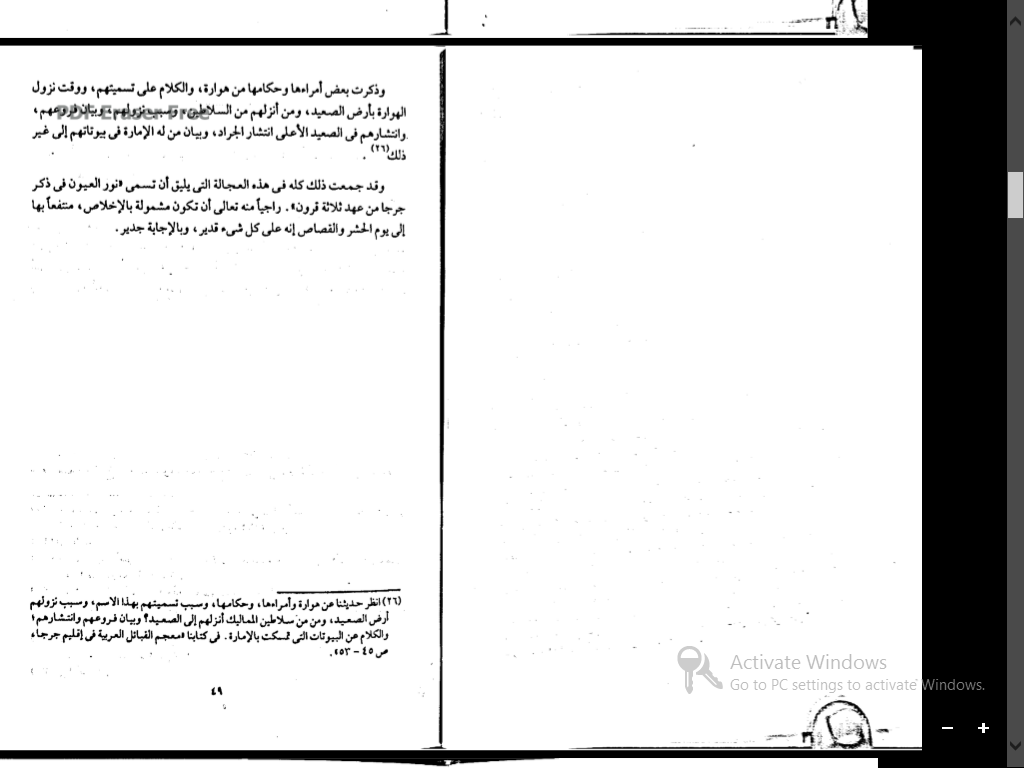 وذكرت بعض أمراءها وحكامها من هوارة، والكلام على تسميتهم، ووقت نزول
الهوارة بأرض الصعيد، ومن أنزلهم من السلاطين، وسبب نزولهم، وبيان فروعهم،
وانتشارهم فى الصعيد الأعلى انتشار الجراد، وبيان من له الإمارة فى بيوتاتهم إلى غير
ذلك(٢٦) .
PDF Eraser Free
وقد جمعت ذلك كله فى هذه العجالة التى يليق أن تسمى «نور العيون فى ذكر
جرجا من عهد ثلاثة قرون». راجياً منه تعالى أن تكون مشمولة بالإخلاص، منتفعاً بها
إلى يوم الحشر والقصاص إنه على كل شىء قدير، وبالإجابة جدير.
(٢٦) انظر حديثنا عن هوارة وأمراءها، وحكامها، وسبب تسميتهم بهذا الاسم، وسبب نزولهم
أرض الصعيد، ومن من سلاطين المماليك أنزلهم إلى الصعيد؟ وبيان فروعهم وانتشارهم؛
والكلام عن البيوتات التى تمسكت بالإمارة. فى كتابنا «معجم القبائل العربية فى إقليم جرجا»
ص ٤٥ – ٥٣».
٤٩
Activate Windows
Go to PC settings to activate Windows.